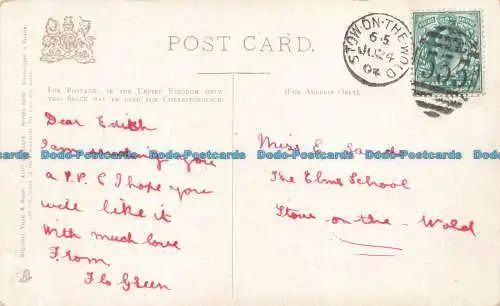 POST CARD.
STOW-ON-THE-WOLD
65
JU 24
04
FOR POSTAGE, IN THE UNITED KINGDOM ONLY,
(FOR ADDRESS ONLY).
THIS SPACE MAY BE USED FOR CORRESPONDENCE
Dear Edith
I am sending you
a P.P.C I hope you
will like it
With much love
From
Flo Green
Miss E.
The Elms School
Stow-on-the-Wold
Dodo-Postcards Dodo-Postcards Dodo-Postcards Dodo-Postcards
Dodo-Postcards Dodo-Postcards Dodo-Postcards Dodo-Postcards